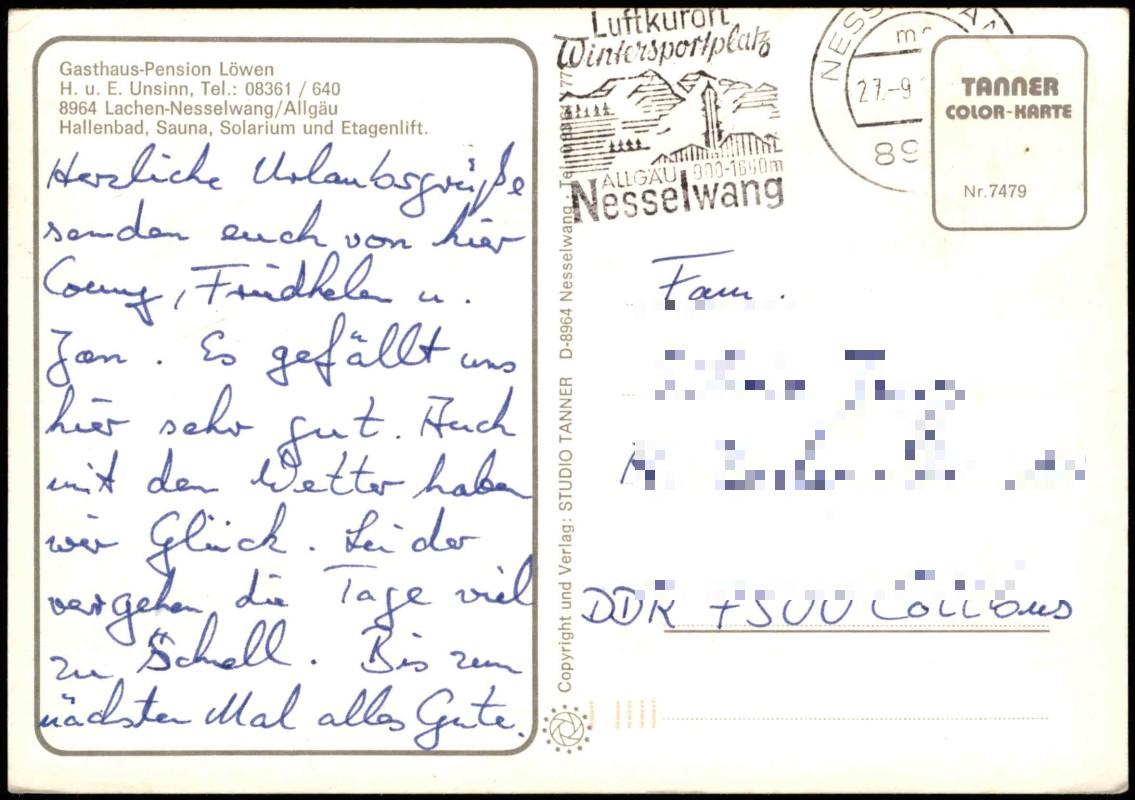 Gasthaus-Pension Löwen
H. u. E. Unsinn, Tel.: 08361 / 640
8964 Lachen-Nesselwang/Allgäu
Hallenbad, Sauna, Solarium und Etagenlift.
Herzliche Urlaubsgrüße
senden euch von hier
Conny, Friedhelm u.
Jan. Es gefällt uns
hier sehr gut. Auch
mit dem Wetter haben
wir Glück. Leider
vergehen die Tage viel
zu Schnell. Bis zum
nächsten Mal alles Gute.
Copyright und Verlag: STUDIO TANNER D-8964 Nesselwang
Luftkurort
Wintersportplatz
ALLGÄU 900-1600m
Nesselwang
27.-9
89
TANNER
COLOR-KARTE
Nr.7479
Fam.
DDR 7500 Cottbus